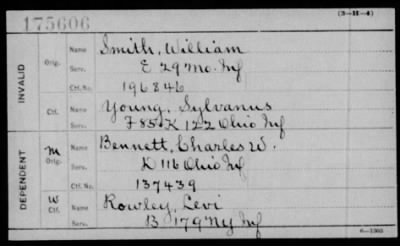 175606
(3-H-4)
INVALID
Orig. Name Smith, William
Serv. E 29 Mo. Inf
Ctf. No. 196846
Ctf. Name Young, Sylvanus
Serv. F 85 & K 122 Ohio Inf
DEPENDENT
M Orig. Name Bennett, Charles W.
Serv. K 116 Ohio Inf
Ctf. No. 137439
W Ctf. Name Rowley, Levi
Serv. B 179 Ny Inf